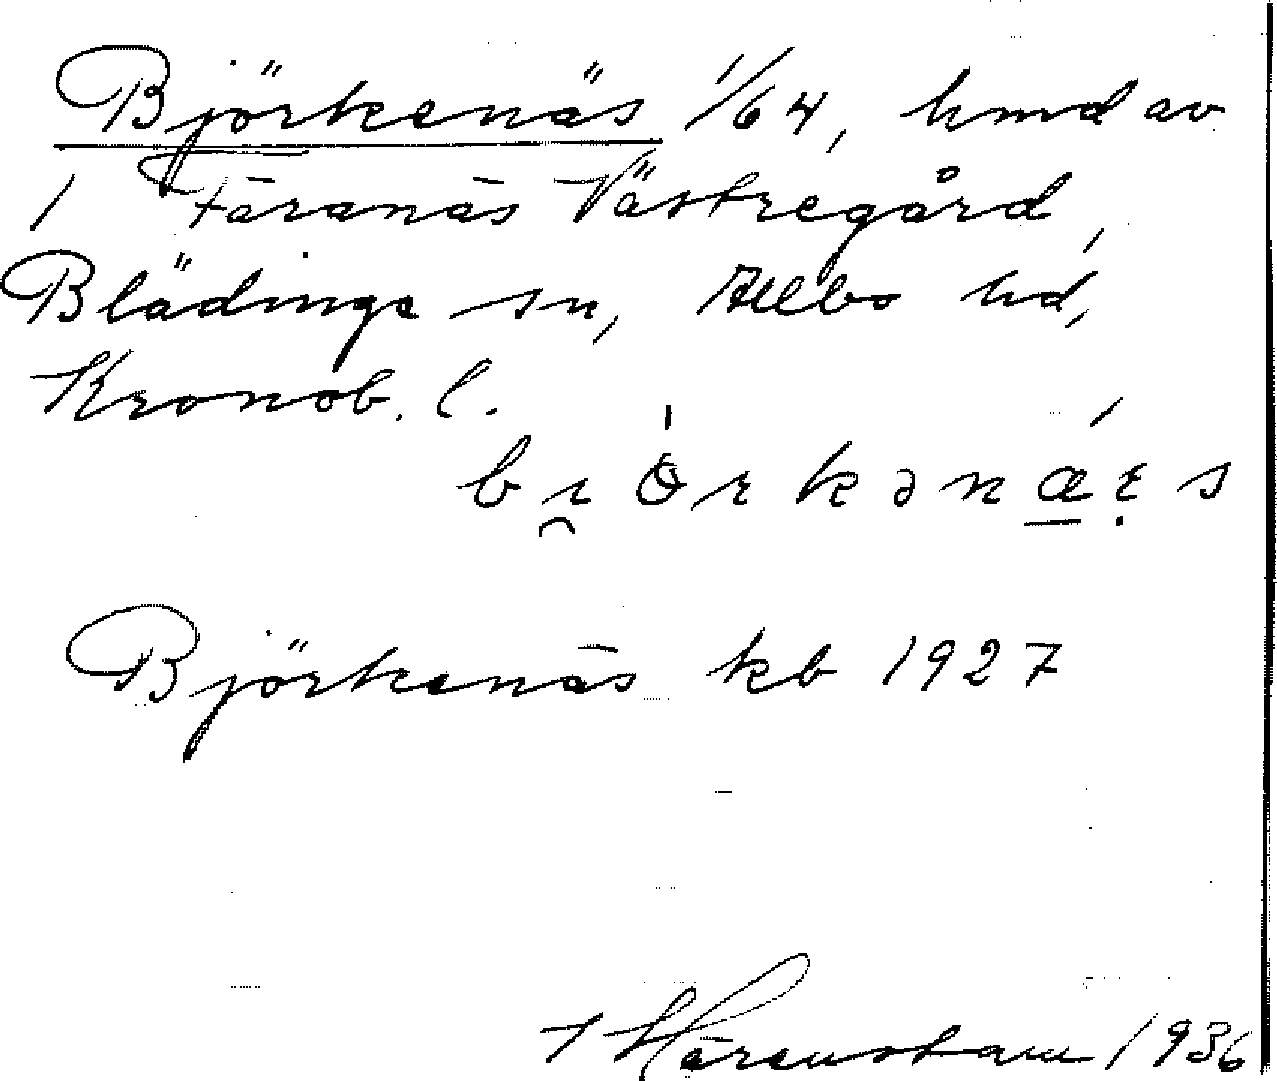 Björkenäs 1/64, hmd av
1 Färanäs Västregård,
Blädinge sn, Allbo hd,
Kronob. l.
Björkenäs kb 1927
Härenstam 1936